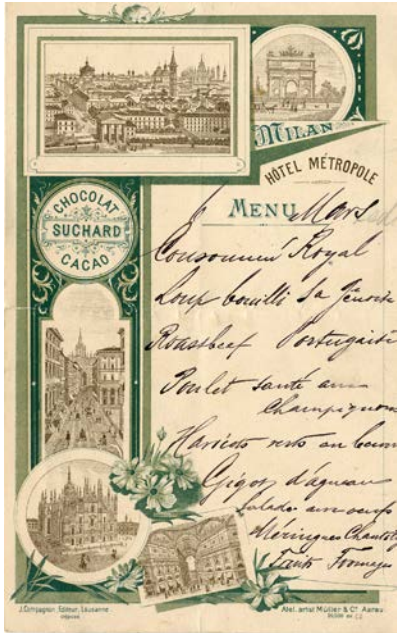 MILAN
HÔTEL MÉTROPOLE
CHOCOLAT
SUCHARD
CACAO
6 Mars
MENU
Consommé Royal
Loup bouilli Sa Génoise
Roastbeef Portugaise
Poulet sauté aux
Champignons
Haricots verts au beurre
Gigot d'agneau
Salade aux oeufs
Méringues Chantilly
Fruits Fromages
J. Compagnon, Editeur, Lausanne
Atel. artist Müller & Cie Aarau